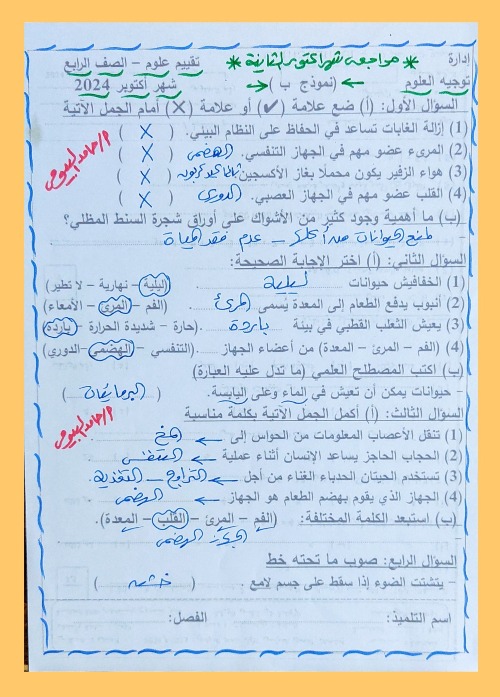 إدارة * مراجعه شهر اكتوبر الثانية * تقييم علوم - الصف الرابع
توجيه العلوم ← (نموذج ب) → شهر أكتوبر 2024
السؤال الأول: (أ) ضع علامة (✓) أو علامة (X) أمام الجمل الآتية
(1) إزالة الغابات تساعد في الحفاظ على النظام البيئي. ( X )
(2) المرىء عضو مهم في الجهاز التنفسي. الهضمى ( X )
(3) هواء الزفير يكون محملًا بغاز الأكسجين ثانى اكسيد كربون ( X )
(4) القلب عضو مهم في الجهاز العصبي. الدورى ( X )
أ/حامد البيومى
(ب) ما أهمية وجود كثير من الأشواك على أوراق شجرة السنط المظلي؟
- لمنع الحيوانات من أكلها - عدم فقد المياة
السؤال الثاني: (أ) اختر الإجابة الصحيحة:
(1) الخفافيش حيوانات ليلية (ليلية - نهارية - لا تطير)
(2) أنبوب يدفع الطعام إلى المعدة يُسمى المرئ (الفم - المرئ - الأمعاء)
(3) يعيش الثعلب القطبي في بيئة باردة (حارة - شديدة الحرارة - باردة)
(4) (الفم - المرئ - المعدة) من أعضاء الجهاز (التنفسي - الهضمي - الدوري)
(ب) اكتب المصطلح العلمي (ما تدل عليه العبارة)
- حيوانات يمكن أن تعيش في الماء وعلى اليابسة. ( البرمائيات )
السؤال الثالث: (أ) أكمل الجمل الآتية بكلمة مناسبة
أ/حامد البيومى
(1) تنقل الأعصاب المعلومات من الحواس إلى ← المخ
(2) الحجاب الحاجز يساعد الإنسان أثناء عملية ← التنفس
(3) تستخدم الحيتان الحدباء الغناء من أجل ← التزاوج - التغذية
(4) الجهاز الذي يقوم بهضم الطعام هو الجهاز ← الهضمى
(ب) استبعد الكلمة المختلفة: (الفم - المرئ - القلب - المعدة).
الجهاز الهضمى
السؤال الرابع: صوب ما تحته خط
- يتشتت الضوء إذا سقط على جسم لامع. ( خشن )
اسم التلميذ: الفصل: